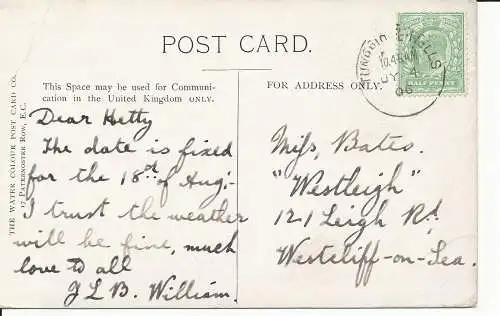 POST CARD.
This Space may be used for Communi-
cation in the United Kingdom ONLY.
FOR ADDRESS ONLY.
THE WATER COLOUR POST CARD CO.
17 PATERNOSTER ROW, E.C.
TUNBRIDGE WELLS
JY
06
HALF PENNY
Dear Hetty
The date is fixed
for the 18th of Aug:-
I trust the weather
will be fine, much
love to all
J L B. William.
Miss, Bates.
"Westleigh"
121 Leigh Rd.
Westcliff-on-Sea.